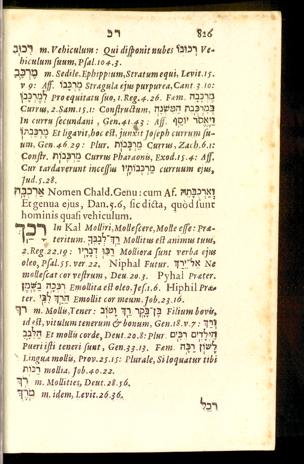 רכ 826
רִכּוּב m. Vehiculum: Qui disponit nubes רְכוּבוֹ Ve-
hiculum suum, Psal. 104.3.
מֶרְכָּב m. Sedile. Ephippium, Stratum equi, Levit. 15.
v 9: Aff. מֶרְכָּבוֹ Stragula ejus purpurea, Cant 3 10:
Pro equitatu suo, 1. Reg. 4.26. Fæm. מֶרְכָּבָה
Currus, 2. Sam. 15.1: Constructum.
In curru secundari, Gen. 41.43: Aff. וַיֶּאְסֹר יוֹסֵף
מֶרְכַּבְתּוֹ Et ligavit, hoc est, junxit Joseph currum su-
um, Gen. 46.29: Plur. מַרְכָּבוֹת Currus, Zach. 6.1:
Constr. מַרְכְּבוֹת Currus Pharaonis, Exod. 15.4: Aff.
Cur tardaverunt incessus מַרְכְּבוֹתָיו curruum ejus,
Jud. 5.28.
אַרְכֻבָּה Nomen Chald. Genu: cum Af.
Et genua ejus, Dan. 5.6, sic dicta, quòd sunt
hominis quasi vehiculum.
רָכַךְ In Kal Molliri, Mollescere, Molle esse: Præ-
teritum. רַךְ־לְבָבְךָ Mollitus est animus tuus,
2. Reg 22.19: רַכּוּ דְבָרָיו Molliora sunt verba ejus
oleo, Psal. 55. ver. 22, Niphal Futur. אַל־יֵרַךְ Ne
mollescat cor vestrum, Deu 20.3. Pyhal Præter.
רֻכְּכָה בַּשָּׁמֶן Emollita est oleo. Jes 1.6. Hiphil Præ-
ter. הֵרַךְ לִבִּי Emollit cor meum. Job. 23.16.
רַךְ m. Mollis, Tener: בֶּן־בָּקָר רַךְ וָטוֹב Filium bovis,
id est, vitulum tenerum & bonum, Gen. 18. v. 7:
וְרַךְ הַלֵּבָב Et mollis corde, Deut. 20.8: Plur. הַיְלָדִים רַכִּים
Pueri isti teneri sunt, Gen. 33.13. Fæm. לָשׁוֹן רַכָּה
Lingua mollis, Prov. 25.15: Plurale, Si loquatur tibi
רַכּוֹת mollia. Job. 40.22.
רֹךְ m. Mollities, Deut. 28.56.
מֹרֶךְ m. idem, Levit. 26.36.
רכל